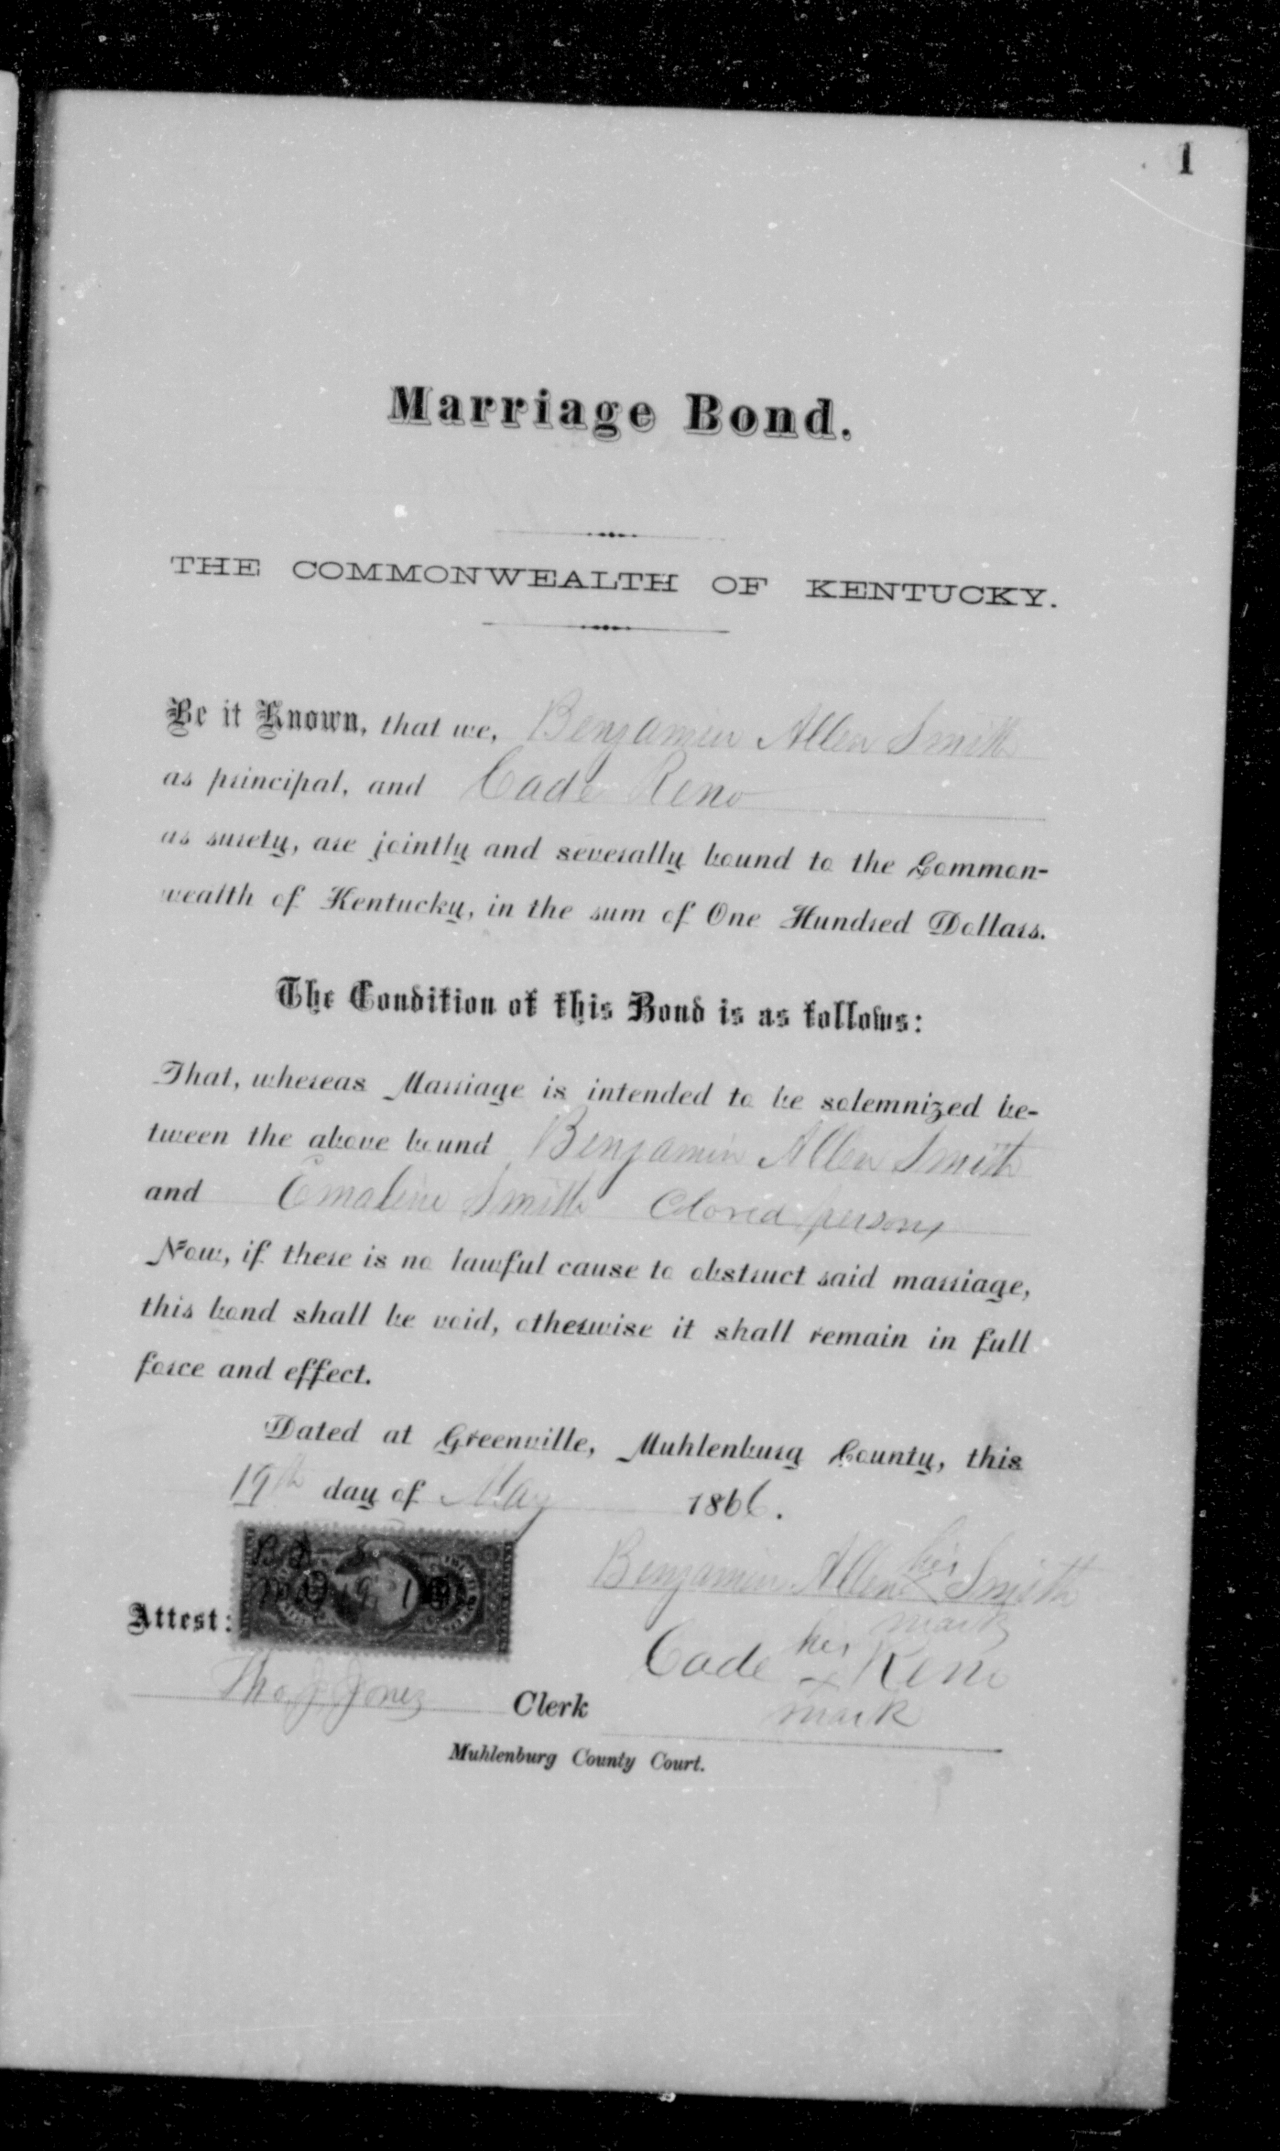 1
Marriage Bond.
THE COMMONWEALTH OF KENTUCKY.
Be it Known, that we, Benjamin Allen Smith
as principal, and Cade Reno
as surety, are jointly and severally bound to the Common-
wealth of Kentucky, in the sum of One Hundred Dollars.
The Condition of this Bond is as follows:
That, whereas Marriage is intended to be solemnized be-
tween the above bound Benjamin Allen Smith
and Emaline Smith Colored persons
Now, if there is no lawful cause to obstruct said marriage,
this bond shall be void, otherwise it shall remain in full
force and effect.
Dated at Greenville, Muhlenburg County, this
19th day of May 1866.
Benjamin Allen his x mark Smith
Attest:
Cade his x mark Reno
Tho J Jones Clerk
Muhlenburg County Court.